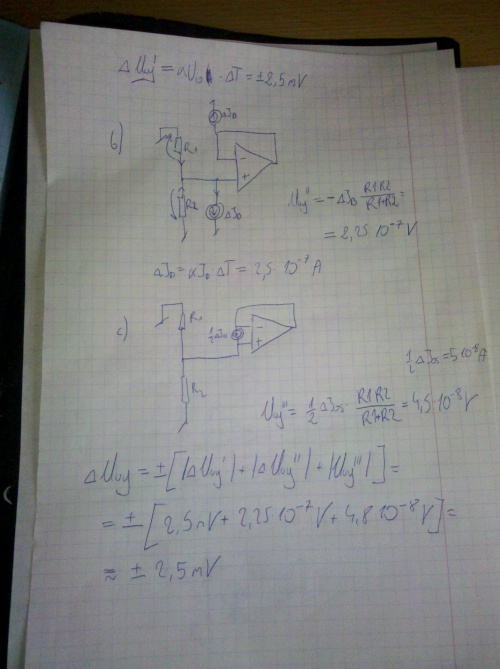 ΔUwy' = αU₀ · ΔT = ±2,5mV
ΔI₀
b)
R1
-
+
R2
ΔI₀
Uwy'' = -ΔI₀ R1R2/R1+R2 =
= 2,25 · 10⁻⁷ V
ΔI₀ = αI₀ · ΔT = 2,5 · 10⁻⁷ A
c)
R1
-
+
R2
½ΔI₀s = 5·10⁻⁸A
Uwy'' = ½ ΔI₀s · R1R2/R1+R2 = 4,5 · 10⁻⁸ V
ΔUwy = ±[|ΔUwy'| + |ΔUwy''| + |Uwy'''|] =
= ±[2,5mV + 2,25 · 10⁻⁷V + 4,8 · 10⁻⁸V] =
≈ ± 2,5mV